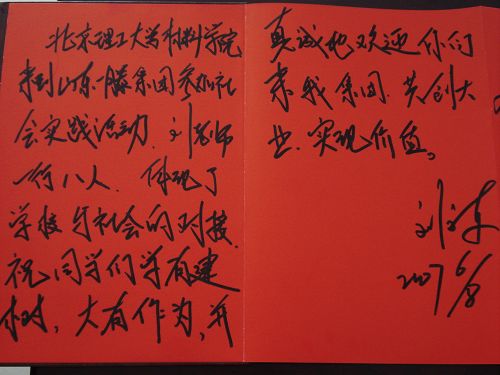 北京理工大学材料学院
来到山东一滕集团参加社
会实践活动，刘老师
一行八人，体现了
学校与社会的对接，
祝同学们学有建
树，大有作为，并
真诚地欢迎你们
来我集团，共创大
业，实现价值。
刘
2007 6/8